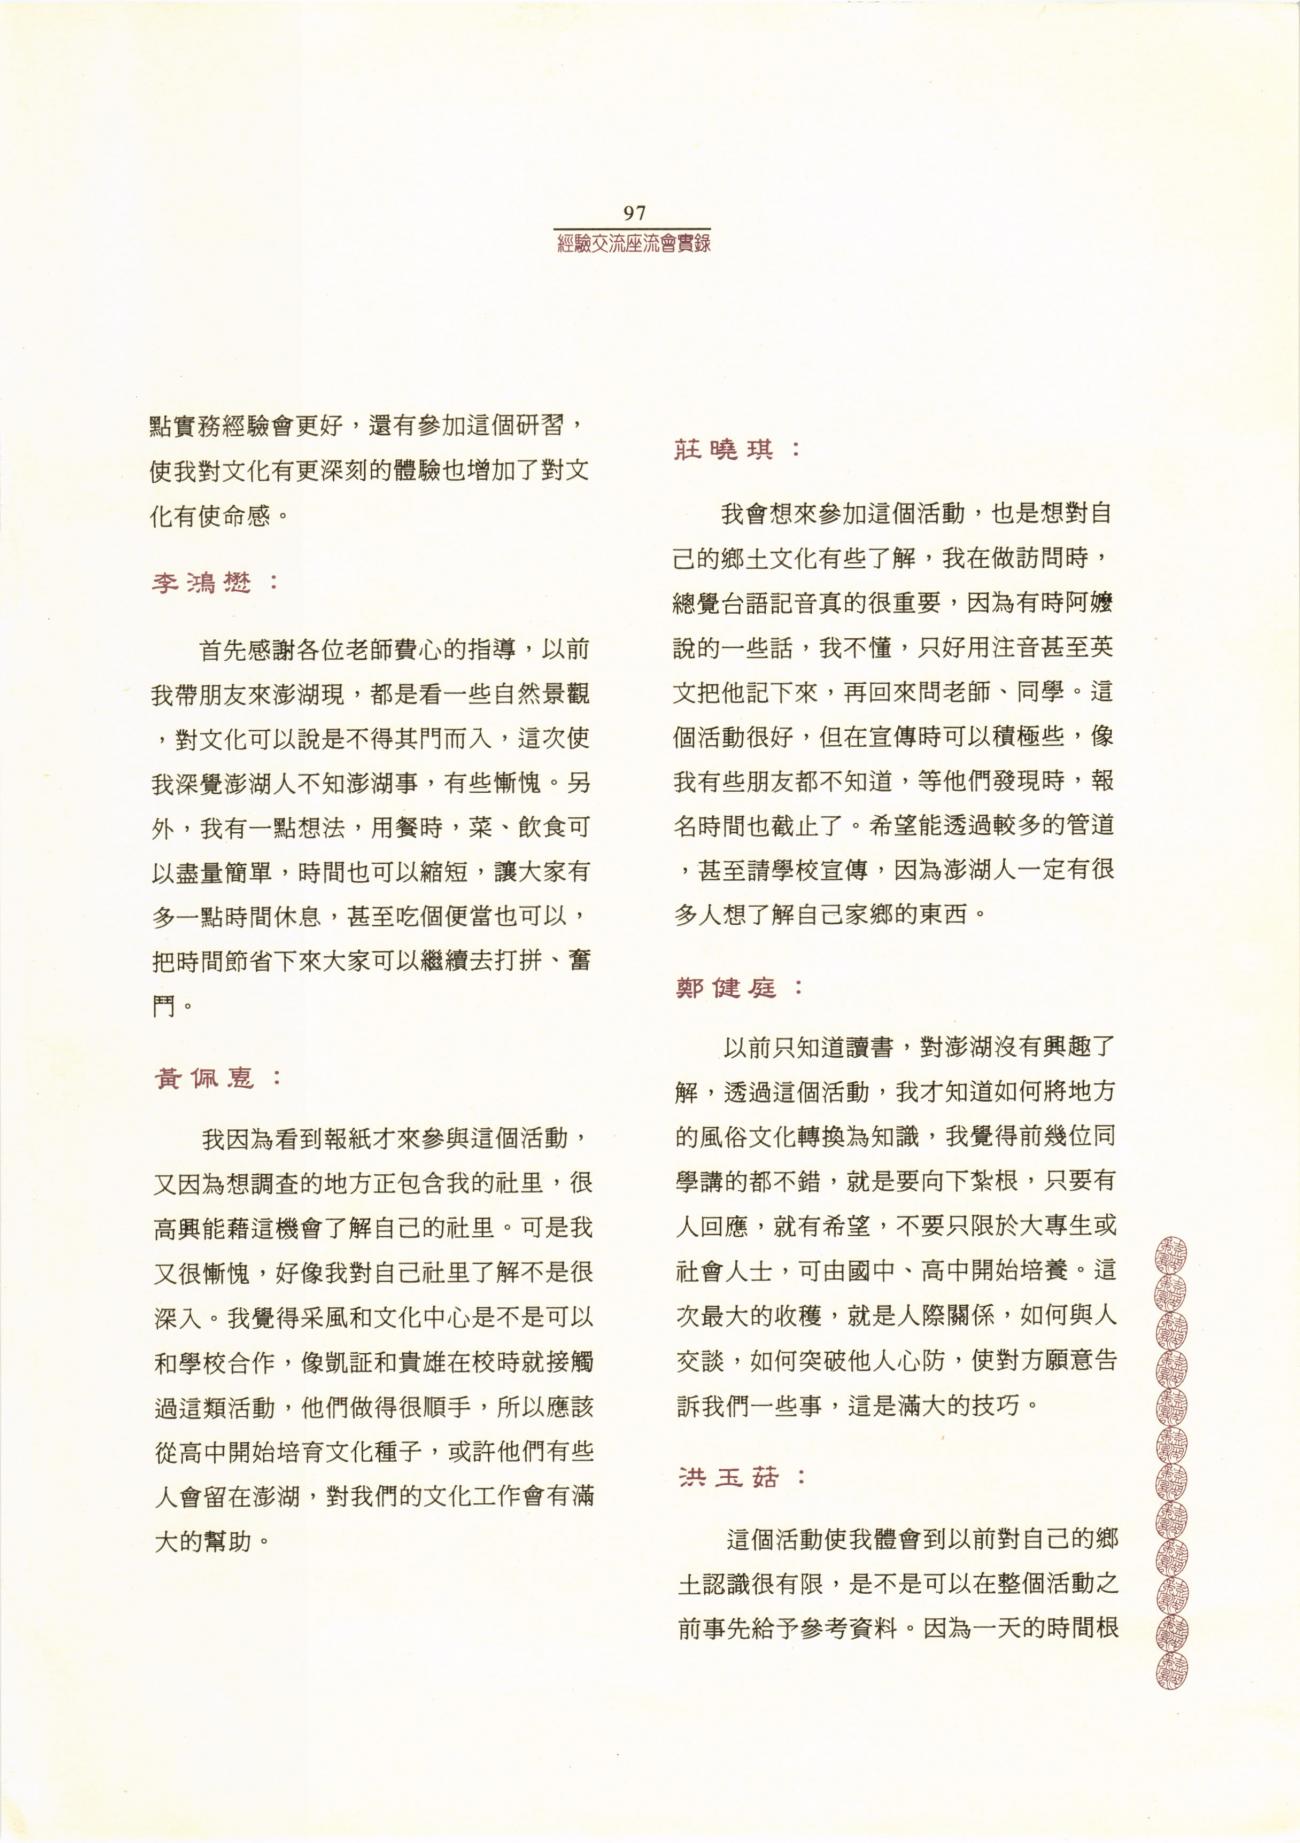 97
經驗交流座流會實錄
點實務經驗會更好，還有參加這個研習，
使我對文化有更深刻的體驗也增加了對文
化有使命感。
李鴻懋：
首先感謝各位老師費心的指導，以前
我帶朋友來澎湖現，都是看一些自然景觀
，對文化可以說是不得其門而入，這次使
我深覺澎湖人不知澎湖事，有些慚愧。另
外，我有一點想法，用餐時，菜、飲食可
以盡量簡單，時間也可以縮短，讓大家有
多一點時間休息，甚至吃個便當也可以，
把時間節省下來大家可以繼續去打拼、奮
鬥。
黃佩惠：
我因為看到報紙才來參與這個活動，
又因為想調查的地方正包含我的社里，很
高興能藉這機會了解自己的社里。可是我
又很慚愧，好像我對自己社里了解不是很
深入。我覺得采風和文化中心是不是可以
和學校合作，像凱証和貴雄在校時就接觸
過這類活動，他們做得很順手，所以應該
從高中開始培育文化種子，或許他們有些
人會留在澎湖，對我們的文化工作會有滿
大的幫助。
莊曉琪：
我會想來參加這個活動，也是想對自
己的鄉土文化有些了解，我在做訪問時，
總覺台語記音真的很重要，因為有時阿嬤
說的一些話，我不懂，只好用注音甚至英
文把他記下來，再回來問老師、同學。這
個活動很好，但在宣傳時可以積極些，像
我有些朋友都不知道，等他們發現時，報
名時間也截止了。希望能透過較多的管道
，甚至請學校宣傳，因為澎湖人一定有很
多人想了解自己家鄉的東西。
鄭健庭：
以前只知道讀書，對澎湖沒有興趣了
解，透過這個活動，我才知道如何將地方
的風俗文化轉換為知識，我覺得前幾位同
學講的都不錯，就是要向下紮根，只要有
人回應，就有希望，不要只限於大專生或
社會人士，可由國中、高中開始培養。這
次最大的收穫，就是人際關係，如何與人
交談，如何突破他人心防，使對方願意告
訴我們一些事，這是滿大的技巧。
洪玉菇：
這個活動使我體會到以前對自己的鄉
土認識很有限，是不是可以在整個活動之
前事先給予參考資料。因為一天的時間根